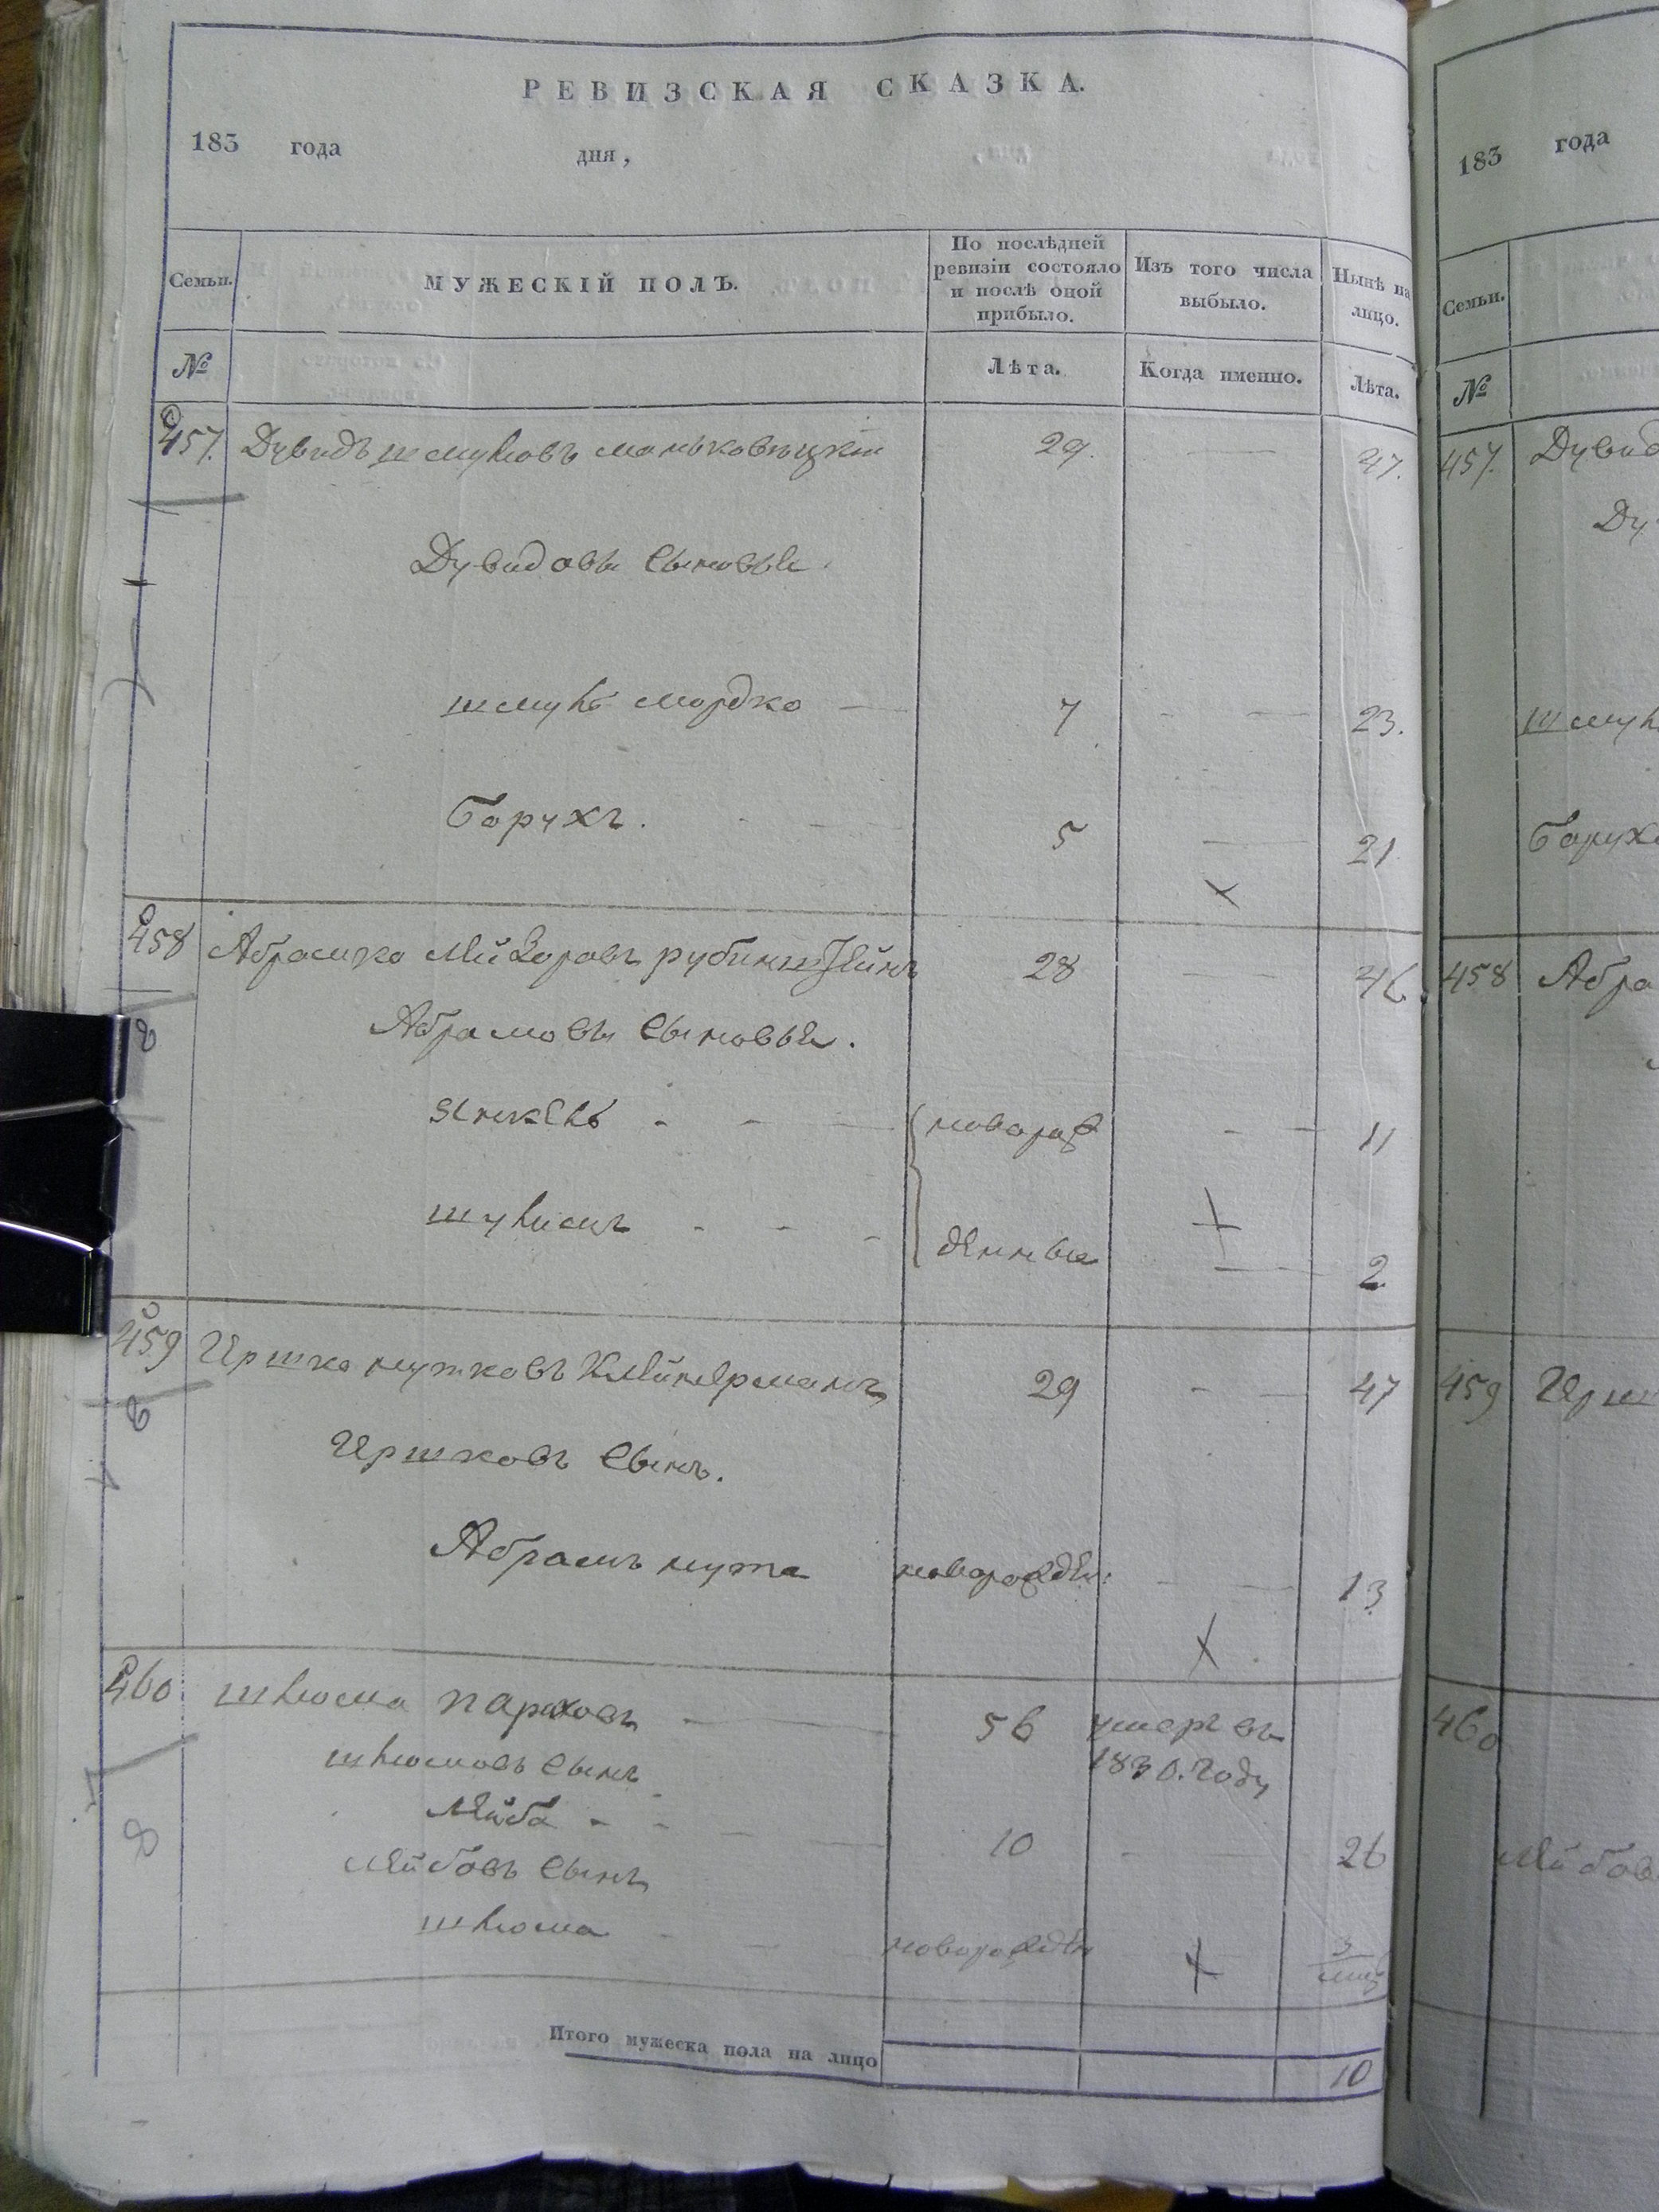 РЕВИЗСКАЯ СКАЗКА.
183 года дня,
Семьи. МУЖЕСКІЙ ПОЛЪ. По послѣдней ревизіи состояло и послѣ оной прибыло. Изъ того числа выбыло. Нынѣ на лицо.
№ Лѣта. Когда именно. Лѣта.
457. Дувидъ Шмулiовъ Маньковѣцкiй 29. 47.
Дувидовы сыновья.
Шмуль Мордко 7 23.
Борухъ. 5 21
458 Абрамко Лейзоровъ Рубинштейнъ 28 46
Абрамовы сыновья.
Янкель новорож 11
Шулимъ денные 2
459 Иршко Нутковъ Клейнерманъ 29 47
Иршковъ сынъ.
Абрамъ Нута новорожден: 13
460 Шлюома 56 умеръ въ
1830. году
Шлюомовъ сынъ
Лейба 10 26
Лейбовъ сынъ
Шлюома новорожден
Итого мужеска пола на лицо 10
183 года
Семьи.
№
457. Дувид
Ду
Шмул
Борухо
458 Абра
459 Ирш
460
Лейбов